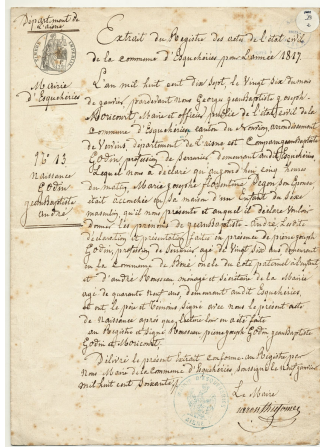 Département de
l'aisne
Mairie
d'Esquehéries
N° 13
Naissance
Godin
jean Baptiste
andré
Extrait du Registre des actes de l'état civil
de la commune d'Esquehéries, pour l'année 1817.
L'an mil huit cent dix sept, le Vingt six du mois
de janvier, pardevant nous George jean Baptiste joseph
Moricourt Maire et officier public de l'état civil de la
Commune d'Esquehéries canton du Nouvion, arrondissement
de Vervins, département de l'aisne est Comparu jean Baptiste
Godin, profession de Serrurier demeurant audit Esquehéries
Lequel nous a déclaré qu'aujourd'hui cinq heures
du matin, Marie josephe florentine son Epouse
était accouchée en Sa maison d'un Enfant du Sexe
masculin qu'il nous présente et auquel il déclare Vouloir
donner les prénoms de jean Baptiste andré, Lesdites
déclaration et présentation faites en présence de pierre joseph
Godin, profession de Serrurier âgé de Vingt six ans demeurant
en la Commune de Boué oncle du Coté paternel à l'enfant
et d'andré Rousseau ménager et Secrétaire de la Mairie
âgé de quarante neuf ans, demeurant audit Esquehéries,
et ont le père et témoins Signé avec nous le présent acte
de naissance après que lecture leur en a été faite
au Registre est Signé Rousseau, pierre joseph Godin, jean Baptiste
Godin et Moricourt.
Délivré le présent Extrait conforme au Registre par
Nous Maire de la Commune d'Esquehéries Soussigné le
mil huit cent Soixante
Le Maire